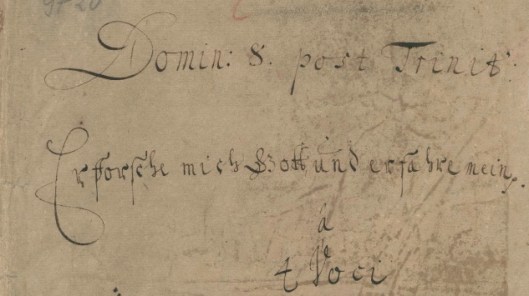 Domin: 8. post Trinit:
Erforsche mich Gott und erfahre mein p.
à
4 Voci